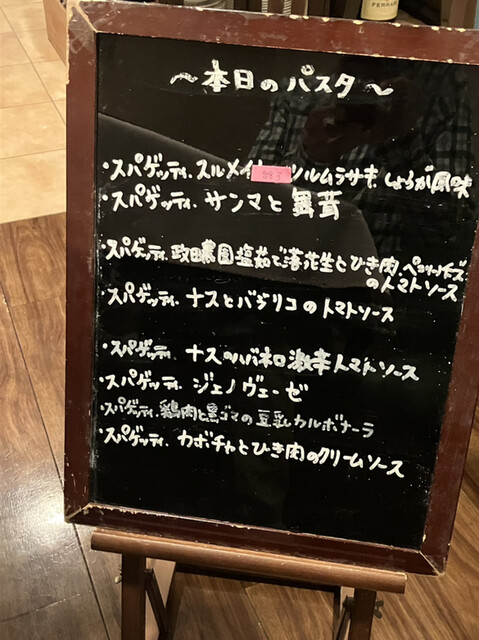 FERRARI
~本日のパスタ~
・スパゲッティ スルメイ ツルムラサキ しょうが風味
・スパゲッティ サンマと舞茸
・スパゲッティ 農園塩茹で落花生とひき肉 ペコリーノチーズ
のトマトソース
・スパゲッティ ナスとバジリコのトマトソース
・スパゲッティ ナスのハバネロ激辛トマトソース
・スパゲッティ ジェノヴェーゼ
・スパゲッティ 鶏肉と黒ゴマの豆乳カルボナーラ
・スパゲッティ カボチャとひき肉のクリームソース